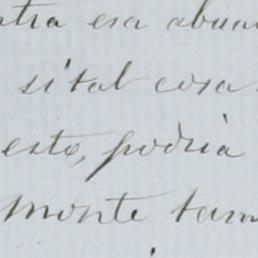 ntra esa abun
si tal cosa
esto, podria
monte tam